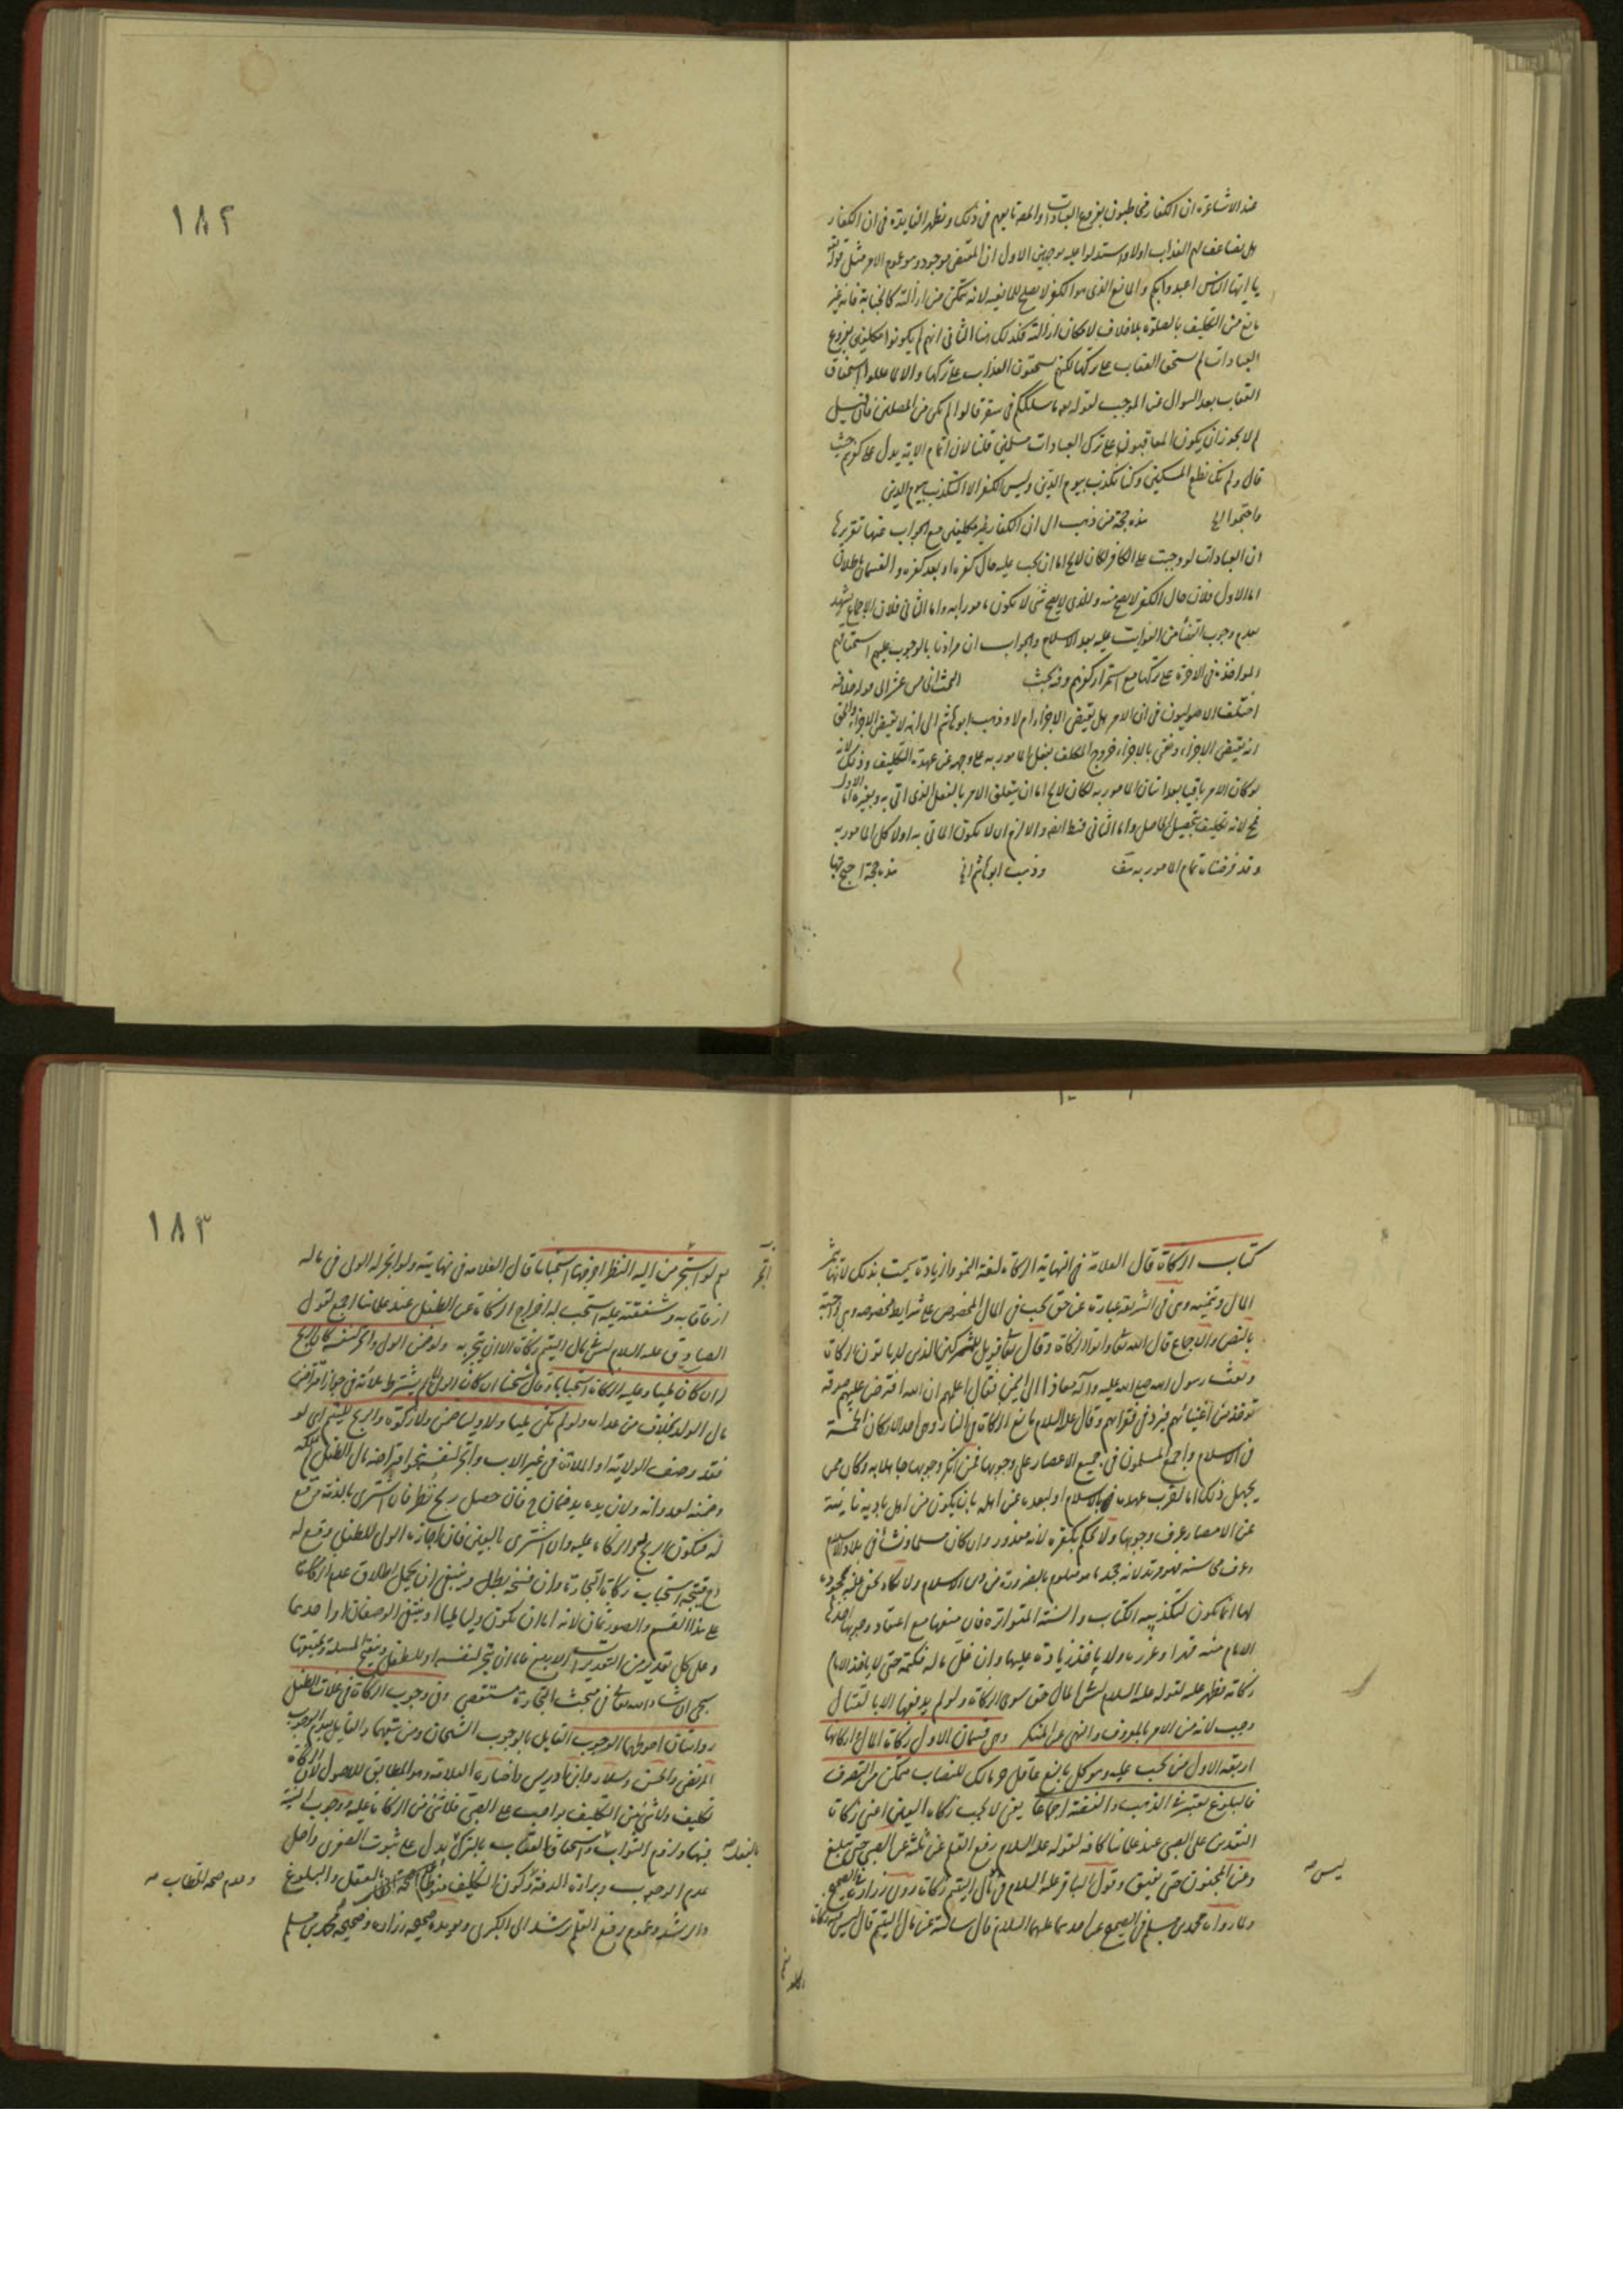 ١٨٢
عند الاشاعرة ان الكفار مخاطبون بفروع العبادات والمعتزلة يوافقونهم في ذلك وتظهر الفايدة في ان الكفار
هل يضاعف لهم العذاب اولا واستدلوا عليه بوجهين الاول ان المقتضي موجود وهو عموم الامر مثل قوله
يا ايها الناس اعبدوا ربكم والمانع الذي هو الكفر لا يصلح للمانعية لانه يتمكن من ازالته كالجنابة فانه غير
مانع من التكليف بالصلوة بلا خلاف لامكان ازالته فكذلك هنا الثاني انهم لم يكونوا مكلفين بفروع
العبادات لم يستحق العقاب على تركها لكنهم يستحقون العذاب على تركها والا لما عللوا استحقاق
العقاب بعد السوال عن الموجب لقوله تعالى ما سلككم في سقر قالوا لم نكن من المصلين فان قيل
لم لا يجوز ان يكون المعاقبون على ترك العبادات مسلمين قلنا لان اتمام الاية يدل على كفرهم حيث
قال ولم نك نطعم المسكين وكنا نكذب بيوم الدين وليس الكفر الا التكذيب بيوم الدين
واحتجوا الخ هذه حجة من ذهب الى ان الكفار غير مكلفين مع الجواب عنها تقريرها
ان العبادات لو وجبت على الكافر لكان لا يخ اما ان يجب عليه حال كفره او بعد كفره والقسمان باطلان
اما الاول فلان حال الكفر لا يصح منه والذي لا يصح شئ لا يكون مامورا به واما الثاني فلان الاجماع يشهد
بعدم وجوب القضا من الفوايت عليه بعد الاسلام والجواب ان مرادنا بالوجوب عليهم استحقاقهم
المواخذة في الاخرة على تركها مع استمرار كفرهم وفيه بحث البحث الخامس عشر الى قوله خلافه
اختلف الاصوليون في ان الامر هل يقتضي الاجزاء ام لا وذهب ابو هاشم الى انه لا يقتضي الاجزاء والحق
انه يقتضي الاجزاء ونعني بالاجزاء خروج المكلف بفعل المامور به على وجهه عن عهدة التكليف وذلك لانه
لو كان الامر باقيا بعد اتيان المامور به لكان لا يخ اما ان يتعلق الامر بالفعل الذي اتى به وبغيره اما الاول
فمح لانه تكليف بتحصيل الحاصل واما الثاني فظ ايضا والا لزم ان لا يكون الماتي به اولا كل المامور به
وقد فرضناه تمام المامور به هف وذهب ابو هاشم الخ هذه حجة احتج بها
كتاب الزكاة قال العلامة في النهاية الزكاة لغة النمو والزيادة سميت بذلك لانها تثمر
المال وتنميه وهي في الشريعة عبارة عن حق يجب في المال المخصوص على شرايط مخصوصة وهي واجبة
بالنص والاجماع قال الله تعالى واتوا الزكاة وقال تعالى فويل للمشركين الذين لا يؤتون الزكاة
وبعث رسول الله صلى الله عليه وآله معاذا الى اليمن فقال اعلمهم ان الله افترض عليهم صدقة
توخذ من اغنيائهم فترد في فقرائهم وقال عليه السلام مانع الزكاة في النار وهي احد الاركان الخمسة
في الاسلام واجمع المسلمون في جميع الاعصار على وجوبها فمن انكر وجوبها جاهلا به وكان ممن
يجهل ذلك اما لقرب عهده بالاسلام او لبعده عن اهله بان يكون من اهل بادية نايئة
عن الامصار عرف وجوبها ولا يحكم بكفره لانه معذور وان كان مسلما ونشأ في بلاد الاسلام
وعرف محاسنه فهو مرتد لانه جحد ما هو معلوم بالضرورة من دين الاسلام ولا تكاد تخفى عليه فجحوده
لها انما يكون لتكذيبه الكتاب والسنة المتواترة فان منعها مع اعتقاد وجوبها اخذها
الامام منه قهرا وعزره ولا ياخذ زيادة عليها وان غل ماله فكتمه حتى لا ياخذ الامام
زكاته فظهر عليه لقوله عليه السلام ليس في المال حق سوى الزكاة ولو لم يدفعها الا بالقتال
وجب لانه من الامر بالمعروف والنهي عن المنكر وهي قسمان الاول زكاة المال واركانها
اربعة الاول من تجب عليه وهو كل بالغ عاقل حر مالك للنصاب متمكن من التصرف
فالبلوغ يعتبر في الذهب والفضة اجماعا يعني لا تجب زكاة العين اعني زكاة
النقدين على الصبي عند علمائنا كافة لقوله عليه السلام رفع القلم عن ثلثة عن الصبي حتى يبلغ
وعن المجنون حتى يفيق وقول الباقر عليه السلام في مال اليتيم زكاة روى زرارة في الصحيح
ولما رواه محمد بن مسلم في الصحيح عن احدهما عليهما السلام قال سالته عن مال اليتيم قال ليس فيه زكاة
ليس صح
١٨٣
نعم لو اتجر من اليه النظر اخرجها استحبابا قال العلامة في نهايته ولو اتجر له الولي في ماله
ارفاقا به وشفقته عليه استحب له اخراج الزكاة عن الطفل عند علمائنا اجمع لقول
الصادق عليه السلام ليس في مال اليتيم زكاة الا ان يتجر به ولو ضمن الولي واتجر لنفسه كان الربح له
ان كان مليا وعليه الزكاة استحبابا وقال شيخنا ان كان الولي
مال الولد بخلاف من عداه ولو لم يكن مليا ولا وليا ضمن ولا زكوة والربح لليتيم اي لو
فقد وصف الولاية او الملائة في غير الاب واتجر لنفسه
وضمنه لعدوانه ولان يده يد ضمان ح فان حصل ربح نظر فان اشترى بالذمة وقع
له فيكون الربح له والزكاة عليه وان اشترى بالعين فان اجازه الولي للطفل وقع له
فيتجه استحباب زكاة التجارة وان فسخ بطل وينبغي ان يحمل اطلاق عدم الزكاة
على هذا القسم والصور ثمان لانه اما ان يكون وليا مليا او ينتفي الوصفان او احدهما
وعلى كل تقدير من التقديرات الاربع فاما ان يتجر لنفسه او للطفل وتنقيح المسئلة وتحقيقها
يجئ ان شاء الله تعالى في مبحث التجارة مستقصى وفي وجوب الزكاة في غلات الطفل
روايتان احوطهما الوجوب القايل بالوجوب الشيخان ومن تبعهما والقايل بعدم الوجوب
المرتضى والحسن وسلار وابن ادريس واختاره العلامة وهو المطابق للاصول لان الزكاة
تكليف ولا شئ من التكليف بواجب على الصبي فلا شئ من الزكاة عليه ووجوب النية
فيها ولزوم الثواب بالفعل واستحقاق العقاب بالترك يدل على ثبوت الصغرى واصل
عدم الوجوب وبراءة الذمة وكون التكليف منوطا بالعقل والبلوغ
والرشد وعموم رفع القلم يرشد الى الكبرى ويؤيده صحيحة زرارة وصحيحة محمد بن مسلم
وعدم صحة الخطاب صح
بالفعل صح